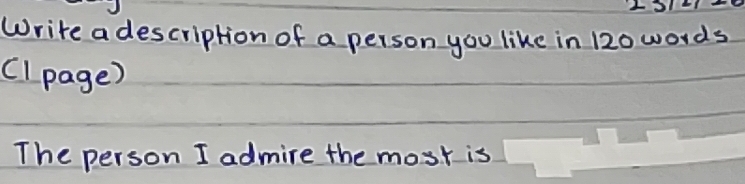 Write a description of a person you like in 120 words
(1 page)
The person I admire the most is